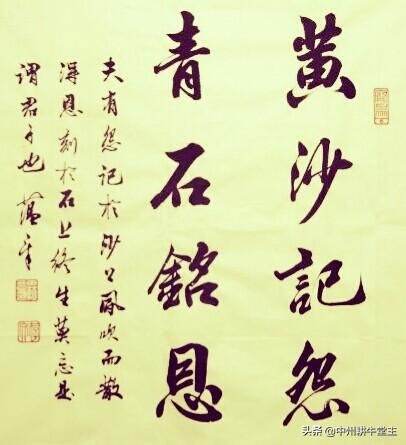 黄沙記怨
青石銘恩
夫有怨記於沙上風吹而散
得恩刻於石上終生莫忘是
謂君子也
头条@中州耕牛堂主